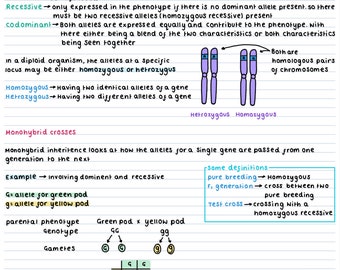 Recessive → only expressed in the phenotype if there is no dominant allele present. so there
must be two recessive alleles (homozygous recessive) present
Codominant → Both alleles are expressed equally and contribute to the phenotype. with
there either being a blend of the two characteristics or both characteristics
being seen together
In a diploid organism, the alleles at a specific
locus may be either homozygous or hetrozygous
Both are
homologous pairs
of chromosomes
Homozygous → Having two identical alleles of a gene
Hetrozygous → Having two different alleles of a gene
Hetrozygous Homozygous
Monohybrid crosses
Monohybrid inheritance looks at how the alleles for a single gene are passed from one
generation to the next
Example → involving dominent and recessive
G= allele for green pod
g= allele for yellow pod
some definitions
pure breeding → Homozygous
F₁ generation → cross between two
pure breeding
Test cross → crossing with a
homozygous recessive
parental phenotype Green pod x yellow pod
Genotype GG gg
Gametes G G g g
G G